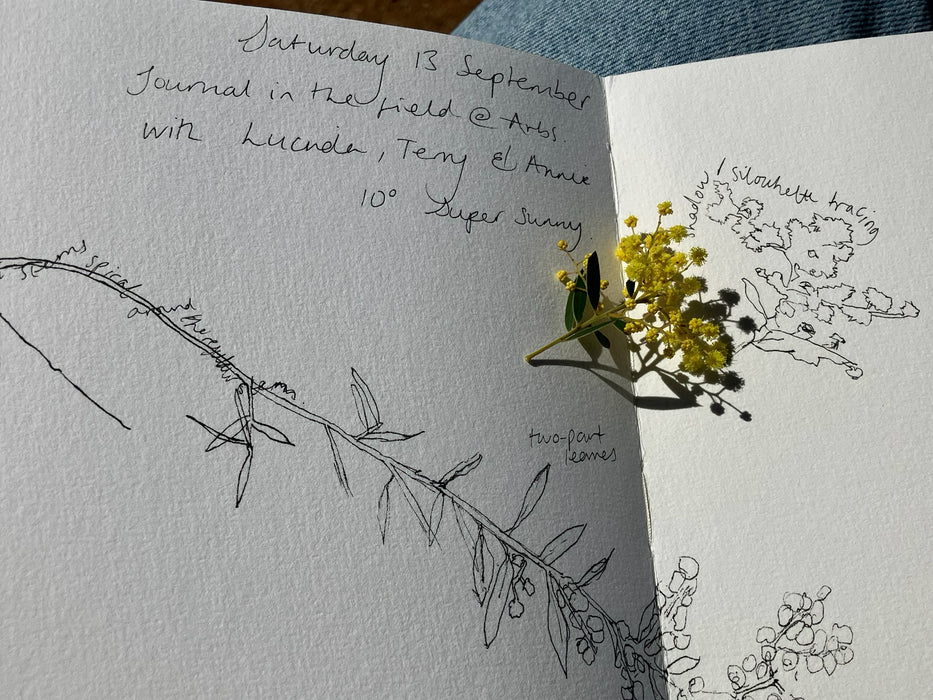 Saturday 13 September
Journal in the field @ Arbs.
with Lucinda, Terry & Annie
10° Super sunny
shadow / silouhette tracing
stems spiral around the
two-part
leaves